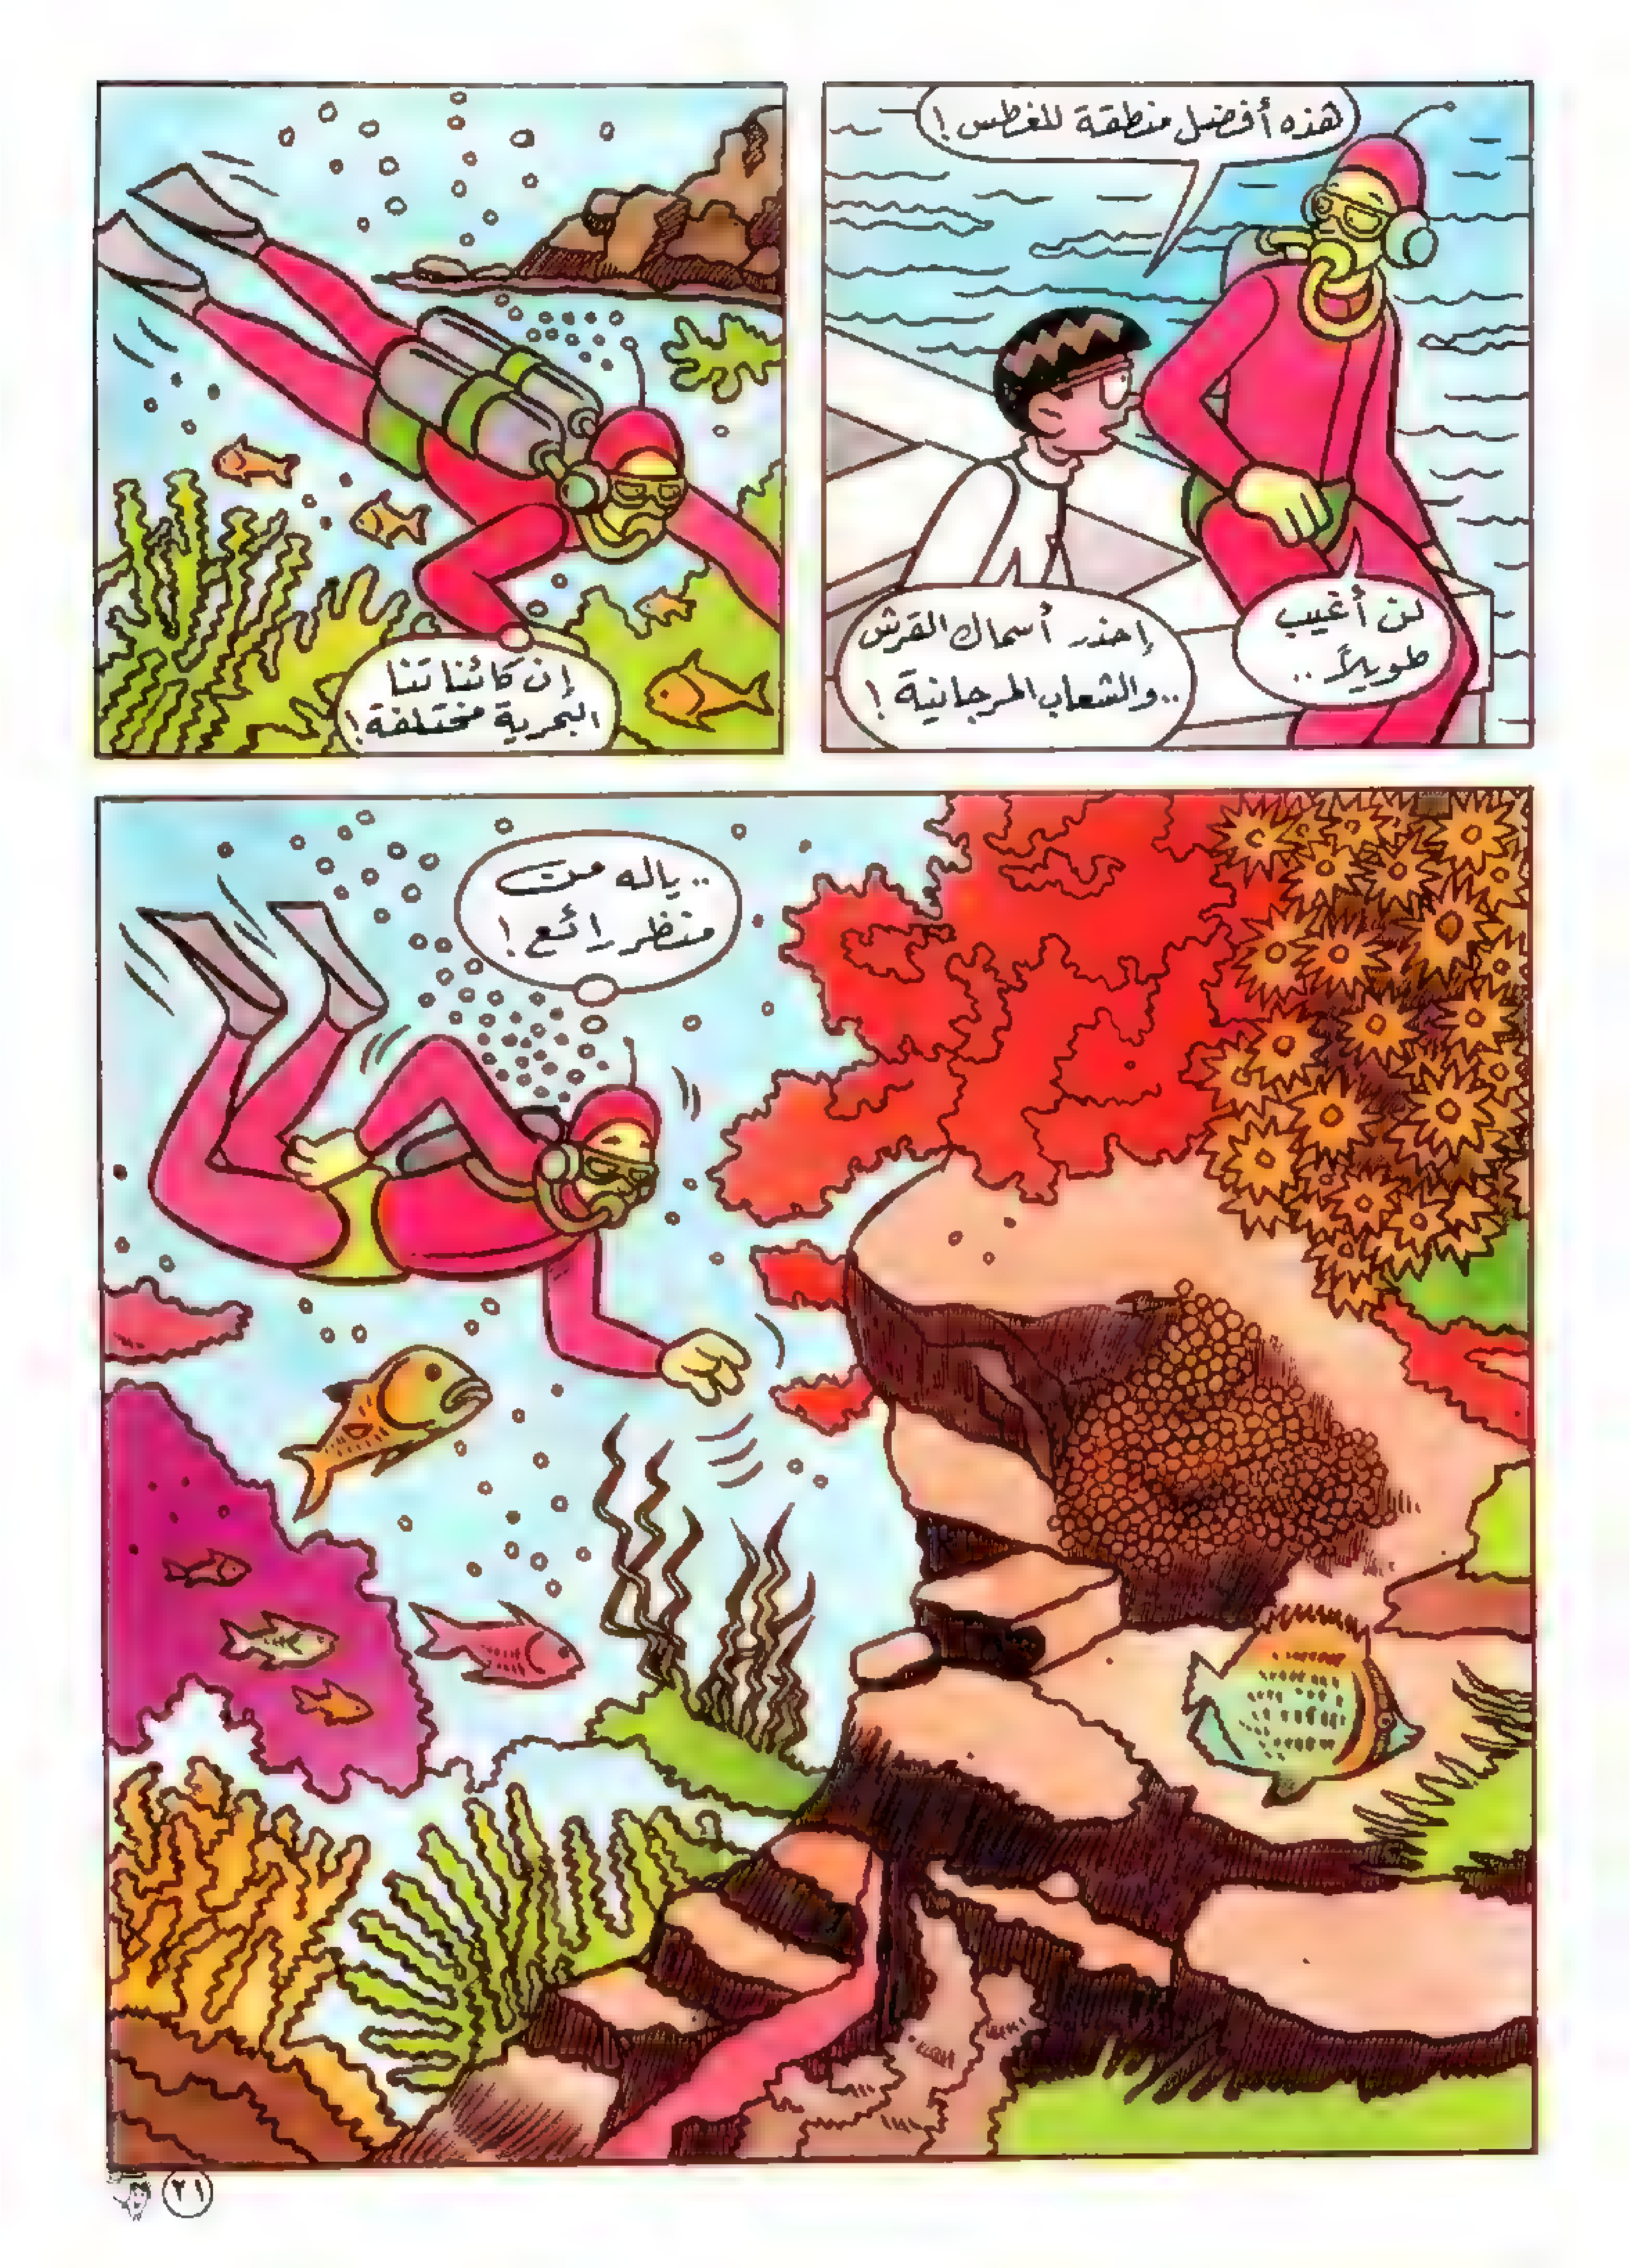 هذه أفضل منطقة للغطس !
لن أغيب
طويلاً ..
إحذر أسماك القرش
.. والشعاب المرجانية !
إن كائناتنا
البحرية مختلفة !
.. ياله من
منظر رائع !
٢١